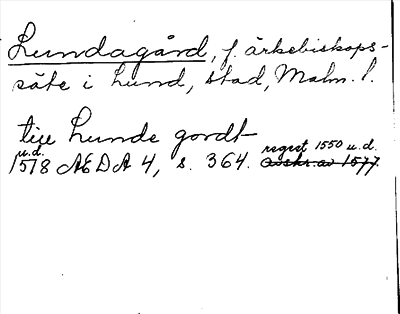 Lundagård, f. ärkebiskops-
säte i Lund, stad, Malm. l.
till Lunde gordt
u.d.
1578 AEDA 4, s. 364. regest 1550 u.d.
Avskr. av 1577.